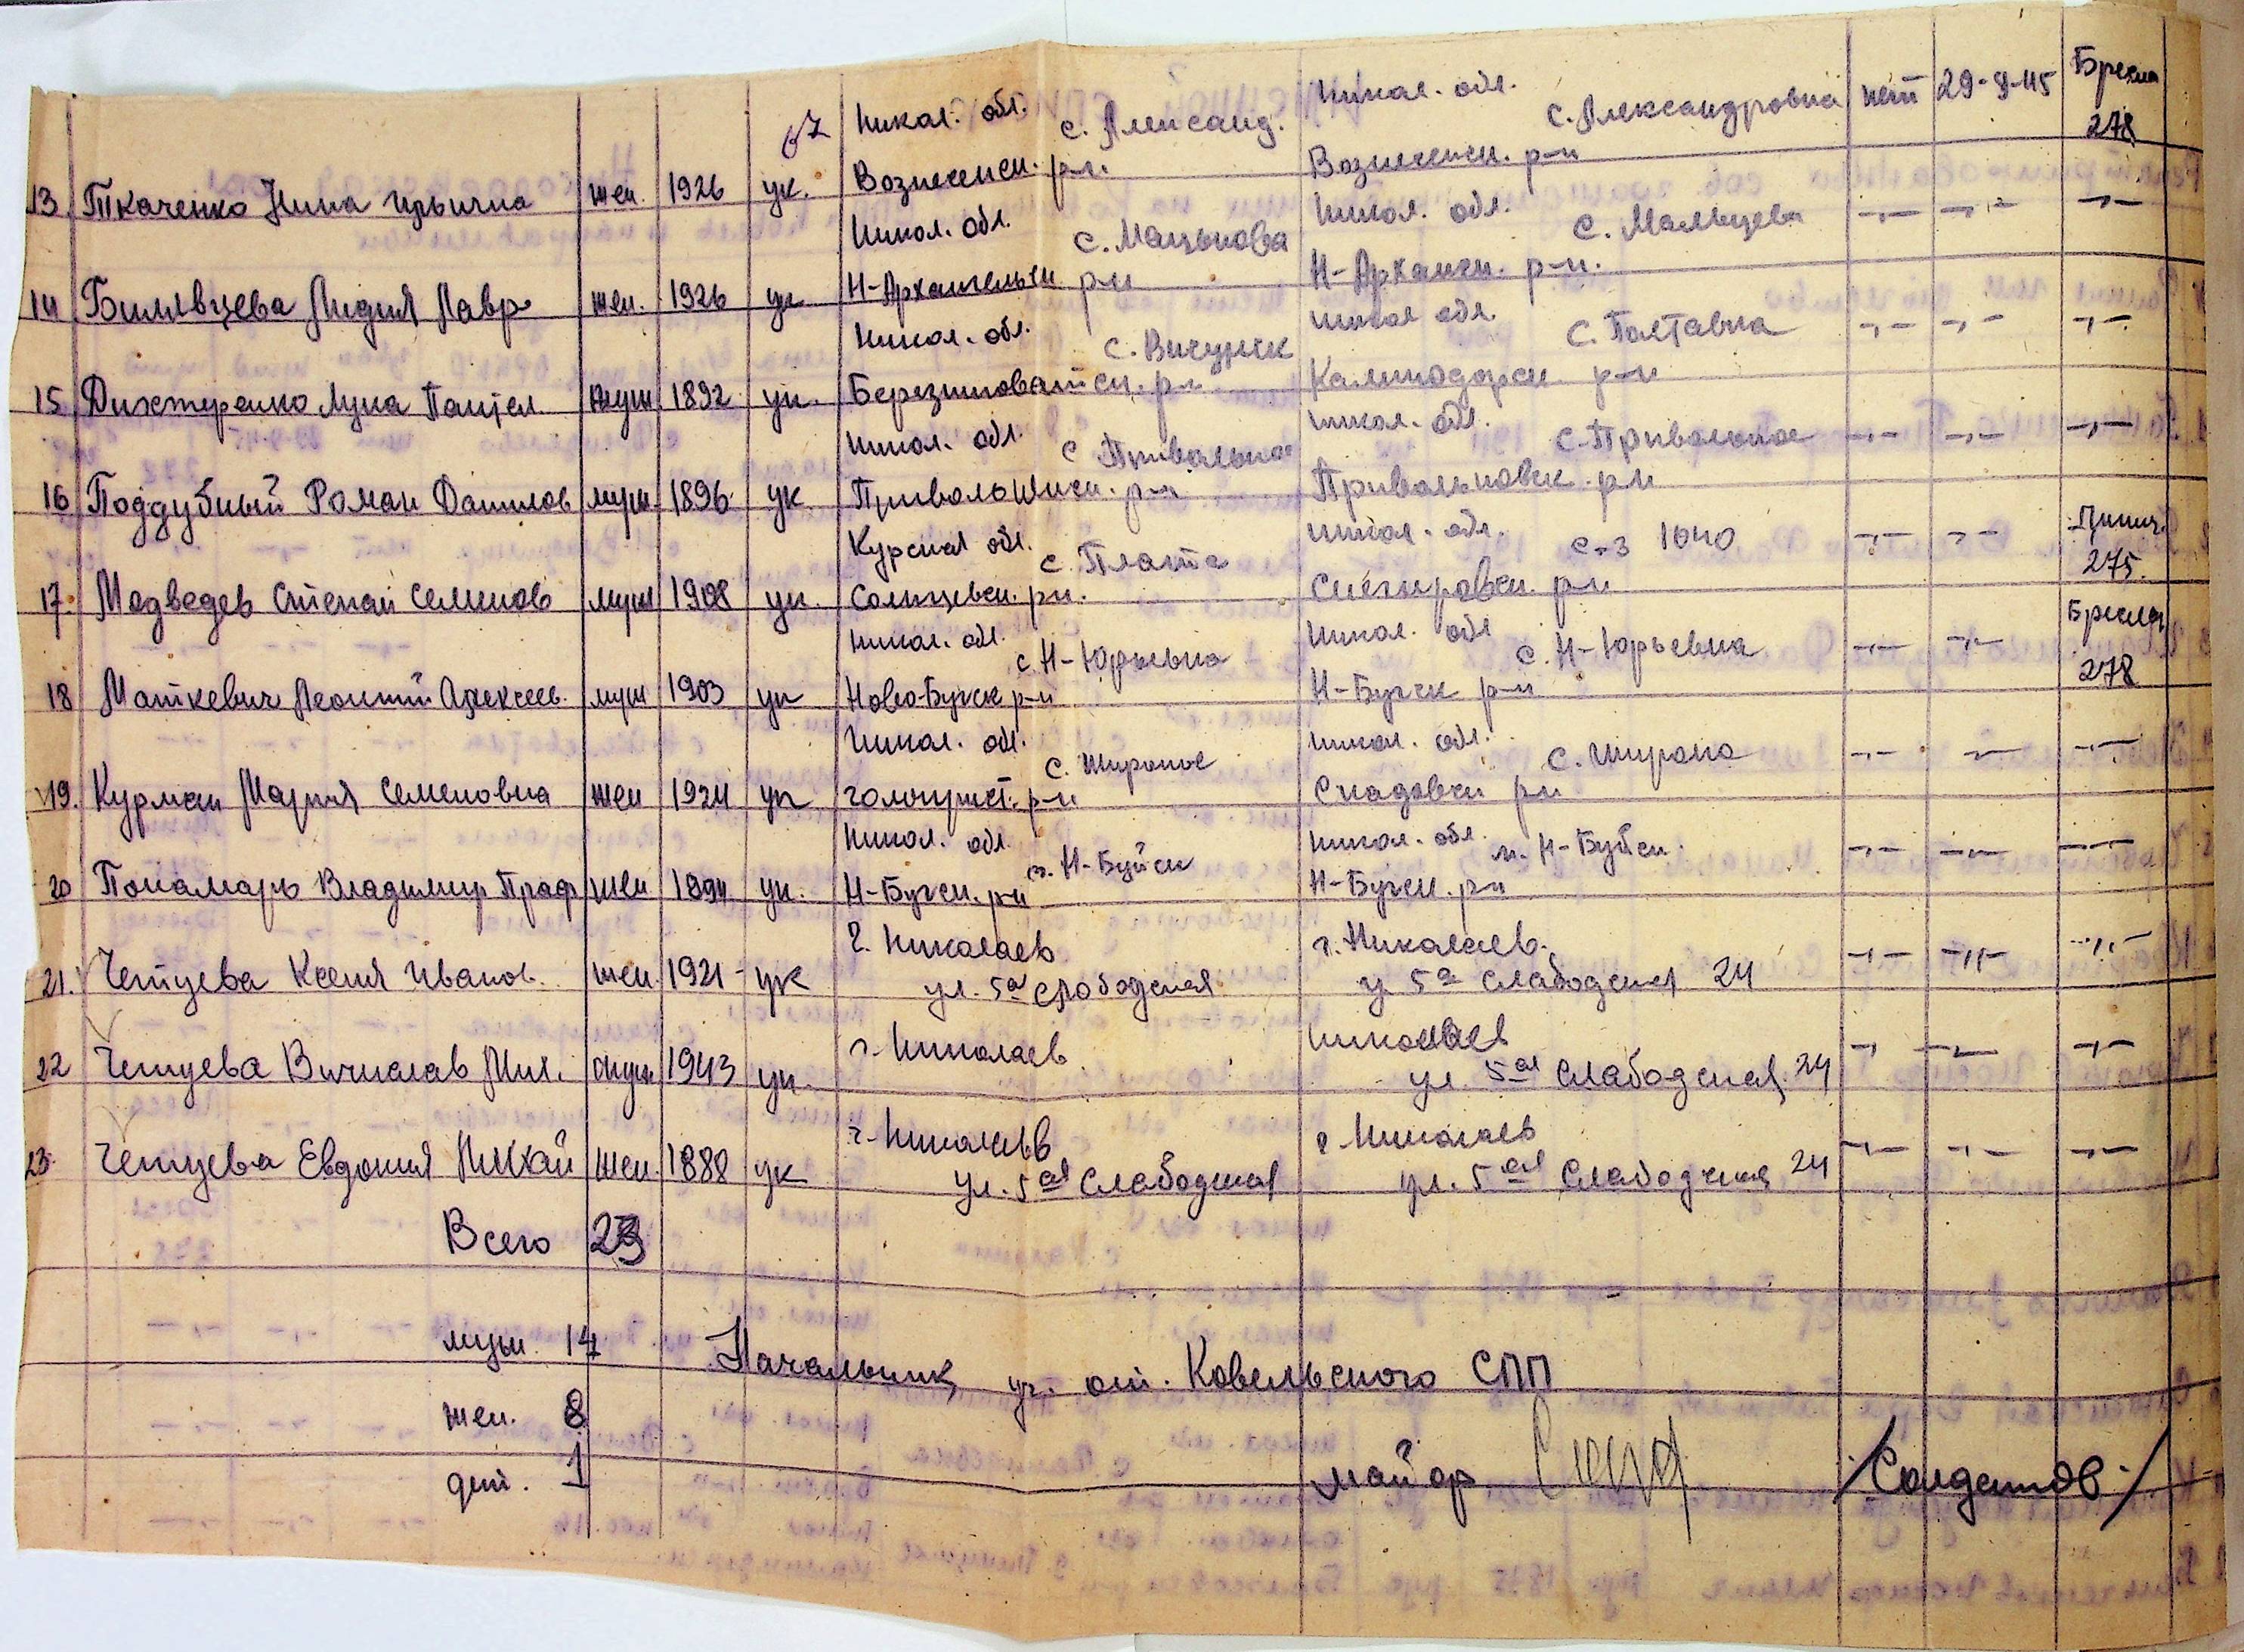 67
Никол. обл. с. Александ. Никол. обл. с. Александровна нет 29-9-45 278
13. Ткаченко Нина Ильинична жен. 1926 ук. Вознесенск. р-н. Вознесенск. р-н
Никол. обл. Никол. обл. с. Мальцева -"- -"- -"-
14 Лидия Лавр жен. 1926 ук Н-Архангельск р-н Н-Арханг. р-н.
Никол. обл. с. Висунск Никол обл. с. Полтавка -"- -"- -"-
15 Дихтяренко Лука Пантел. муж. 1892 ук. Березниговатск. р-н Калинодорск р-н
Никол. обл. с Привольное Никол. обл. с. Привольное -"- -"- -"-
16 Поддубный Роман Данилов муж. 1896 ук. р-н Привольновск. р-н
Курская обл. с. Плата Никол. обл. с-з 1640 -"- -"- 275.
17. Медведев Степан Семенов муж 1908 ук. Солнцевск. р-н. Снегировск. р-н
Никол. обл. с. Н-Юрьевка Никол. обл с. Н-Юрьевка -"- -"- 278
18 Маткевич Леонтий Алексеев. муж 1903 ук Ново-Бугск р-н Н-Бугск р-н
Никол. обл. с. Широкое Никол. обл. с. Широко -"- -"- -"-
19. Курман Мария Семеновна жен 1924 ук голоприст. р-н Скадовск р-н
Никол. обл. Никол. обл м. -"- -"- -"-
20 Понамарь Владимир жен 1894 ук. Н-Бугск. р-н Н-Бугск. р-н
г. Николаев г. Николаев. -"- -"- -"-
21. Ксения Иванов. жен. 1921 ук ул. 5ая Слободская у 5ая Слабодская 24
г. Николаев Николаев -"- -"- -"-
22 Вичислав Мих. муж. 1943 ук. ул 5ая Слабодская 24
г. Николаев г. Николаев -"- -"- -"-
23. Евдокия Михай жен. 1888 ук ул. 5ая Слабодская ул. 5ая Слабодская 24
Всего 23
муж. 14
Начальник от. Ковельского СПП
жен. 8
дет. 1
майор /Солдатов/